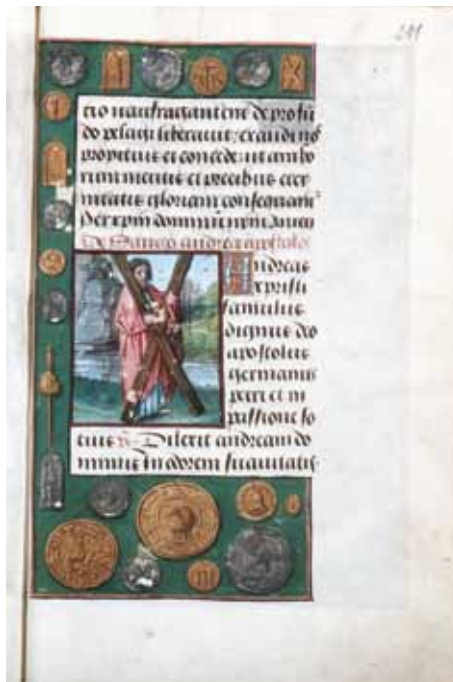 211
cio naufragantem de profu
do pelagi liberavit: exaudi nos
propitius et concede: ut ambo
rum meritis et precibus eter
nitatis gloriam consequam
Per xpm dominum nrm Amen
De Sancto andrea apostolo
Andreas
xpristi
famulus
dignus deo
apostolus
germanus
petri et in
passione so
cius V Dilexit andream do
minus In odorem suavitatis